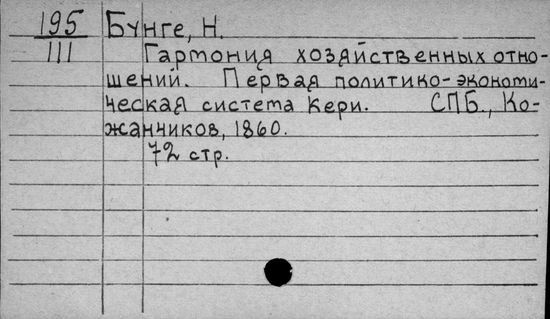 195 Бунге, Н.
III Гармония хозяйственных отно-
шений. Первая политико-экономи-
ческая система Кери. СПБ., Ко-
жанчиков, 1860.
72 стр.